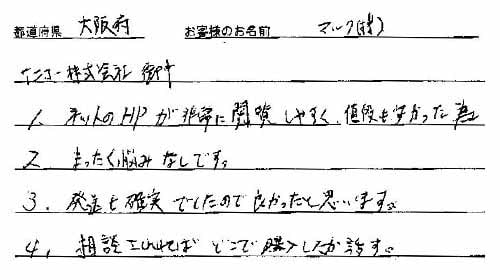 都道府県 大阪府 お客様のお名前 マック(株)
ケンコー株式会社 御中
1. ネットのHPが非常に閲覧しやすく、値段も安かった為
2. まったく悩みなしです。
3. 発送も確実でしたので良かったと思います。
4. 相談されればどこで購入したか話す。